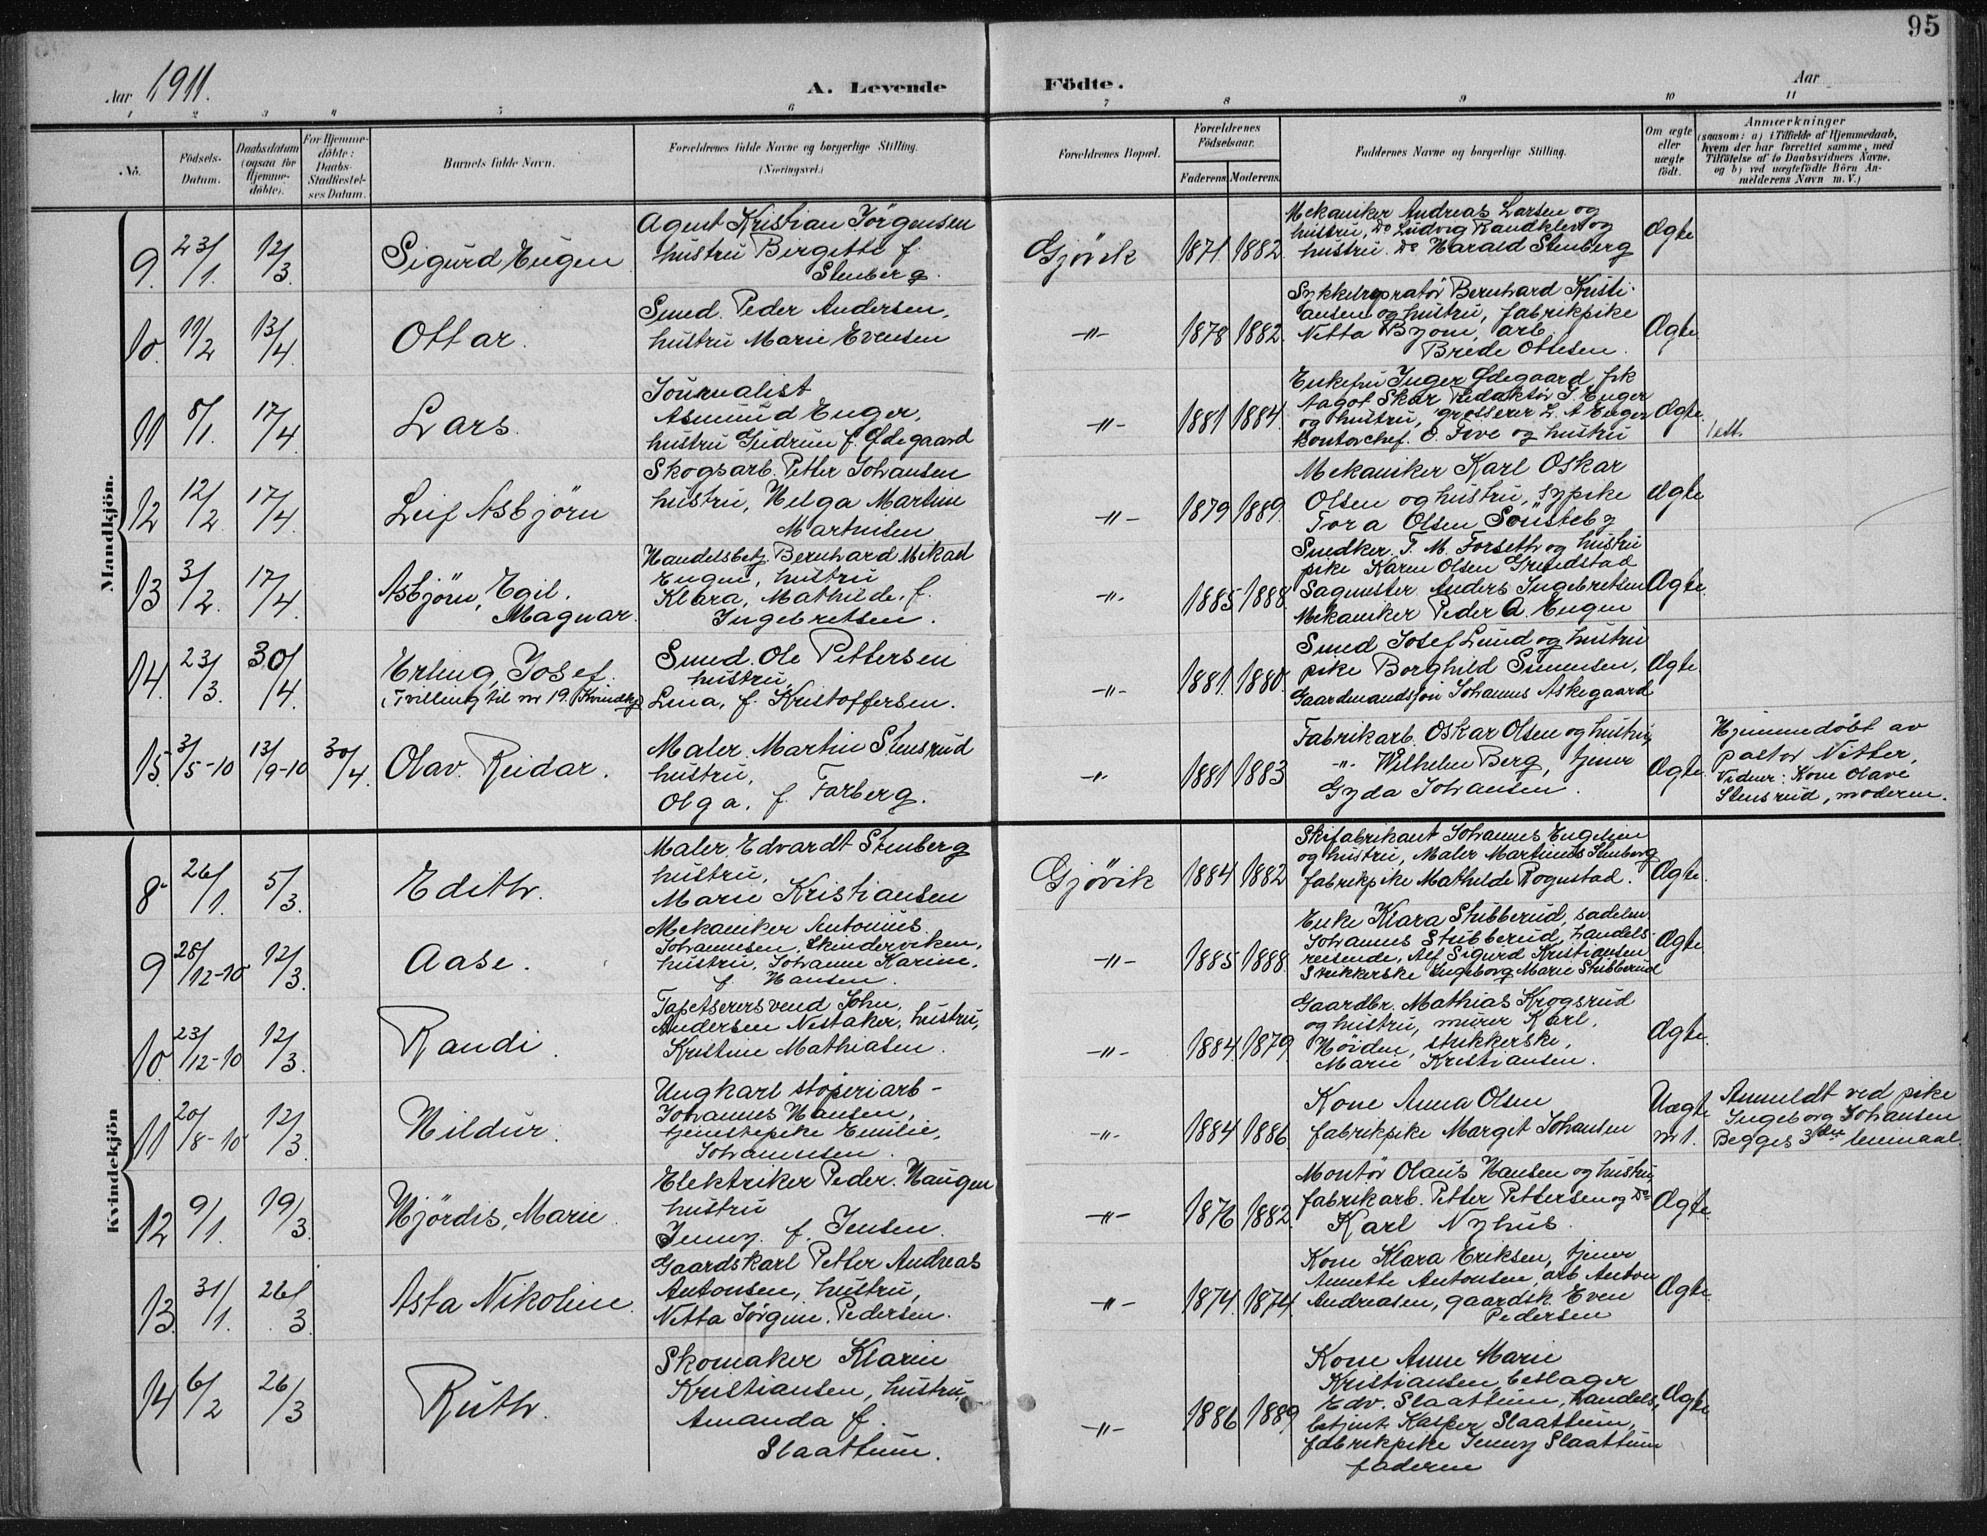 95
Aar 1911.
A. Levende
Födte.
Aar
1 2 3 4 5 6 7 8 9 10 11
No.
Födsels-
Datum.
Daabsdatum
(ogsaa for
Hjemme-
döbte).
For Hjemme-
döbte:
Daabs-
Stadfæstel-
ses Datum.
Barnets fulde Navn.
Forældrenes fulde Navne og borgerlige Stilling.
(Næringsvei.)
Forældrenes Bopæl.
Forældrenes
Födselsaar.
Faderens. Moderens.
Faddernes Navne og borgerlige Stilling.
Om ægte
eller
uægte
födt.
Anmærkninger
(saasom: a) i Tilfælde af Hjemmedaab,
hvem der har forrettet samme, med
Tilföielse af to Daabsvidners Navne.
og b) ved uægtefödte Börn An-
melderens Navn m. V.)
Mandkjön.
9. 23/1. 12/3. Sigurd Eugen
Agent Kristian Jörgensen
hustru Birgitte f.
Stenberg.
Gjövik 1871. 1882.
Mekaniker Andreas Larsen og
hustru, Do Ludvig Randklev og
hustru. Do Harald Stenberg
Ægte
10. 11/2 13/4 Ottar.
Smed. Peder Andersen,
hustru Marie Evensen
-"- 1878 1882.
Sykkelreparatör Bernhard Kristi-
ansen og hustru, fabrikpike
Netta Byom, arb.
Brede Ottesen.
Ægte.
11 8/1. 17/4. Lars.
Journalist
Asmund Enger,
hustru Gudrun f. Ødegaard
-"- 1881 1884.
Enkefru Inger Ødegaard, frk
Aagot Skar Redaktör J. Enger
og hustru, grosserer L. A Enger
kontorchef. O. Five og hustru
Ægte.
1 att.
12 12/2. 17/4. Leif Asbjörn
Skogsarb. Petter Johansen
hustru, Helga Martine
Martinsen
-"- 1879 1889.
Mekaniker Karl Oskar
Olsen og hustru, sypike
Tora Olsen Sönsteby
Ægte
13 3/2. 17/4. Asbjörn, Egil.
Magnar.
Handelsbetj. Bernhard Mikael
Engen, hustru
Klara, Mathilde. f.
Ingebretsen.
-"- 1885 1888.
Snedker. T. M. Forseth og hustru
pike Karen Olsen Grimdstad
Sagmester Anders Ingebretsen
Mekaniker Peder A. Engen
Ægte.
14. 23/3. 30/4 Erling, Josef.
(Tvilling til nr 19. Kvindekj)
Smed. Ole Pettersen
hustru,
Lina, f. Kristoffersen.
-"- 1881. 1880.
Smed Josef Lund og hustru
pike Borghild Simensen,
Gaardmandssön Johannes Askegaard
Ægte.
15. 3/5-10 13/9-10 30/4 Olav. Reidar.
Maler Martin Stensrud
hustru,
Olga, f. Farberg.
-"- 1881 1883
Fabrikarb. Oskar Olsen og hustru,
-"- Wilhelm Berg, tjener
Gyda Johansen.
Ægte.
Hjemmedöbt av
pastor Nitter,
Vidner: Kone Olave
Stensrud, moderen.
Kvindekjön
8 26/1. 5/3. Edith.
Maler. Edvardt Stenberg
hustru,
Marie Kristiansen
Gjövik 1884 1882
Skifabrikant Johannes Engelien
og hustru, Maler Martinius Stenberg
fabrikpike Mathilde Rognstad.
Ægte.
9 28/12-10 12/3. Aase.
Mekaniker Antonius.
Johannesen, Skinderviken,
hustru, Johanne Karine,
f. Hansen.
-"- 1885 1888.
Enke Klara Stubberud, sadelm.
Johannes Stubberud, handels-
reisende, Alf Sigurd Kristiansen
Strikkerske Ingeborg Marie Stubberud
Ægte.
10. 23/12-10 12/3. Randi.
Tapetserersvend John,
Andersen Nestaker, hustru,
Kristine Mathiasen.
-"- 1884. 1879
Gaardbr. Mathias Krogsrud
og hustru, murer Karl,
Höiden, strikkerske,
Marie Kristiansen.
Ægte.
11 20/8-10 12/3. Hildur.
Ungkarl stöperiarb-
Johannes Hansen,
tjenestepike Emilie,
Johannesen.
-"- 1884 1886.
Kone Anna Olsen
fabrikpike Margit Johansen
Uægte
nr 1.
Anmeldt ved pike
Ingeborg Johansen
Begges 3die leiemaal.
12 9/1. 19/3. Hjördis, Marie.
Elektriker Peder. Haugen
hustru
Jenny. f. Jensen.
-"- 1876 1882.
Montör Olaus Hansen og hustru,
fabrikarb. Petter Pettersen og Do
Karl Nyhus.
Ægte.
13. 31/1. 26/3. Asta Nikoline.
Gaardskarl Petter Andreas
Antonsen, hustru,
Netta Jörgine. Pedersen.
-"- 1874. 1874.
Kone Klara Eriksen, tjener
Annette Antonsen, arb Anton
Andreasen, gaardsk. Even
Pedersen
Ægte.
14 6/2 26/3 Ruth.
Skomaker Klarin
Kristiansen, hustru,
Amanda f.
Slaattum.
-"- 1886 1889
Kone Anne Marie
Kristiansen, beslager
Edv. Slaattum, handels,
betjent Kasper Slaattum,
fabrikpike Jenny Slaattum
faderen
Ægte